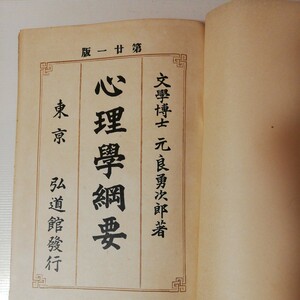 第廿一版
文學博士 元良勇次郎著
心理學綱要
東京 弘道館發行